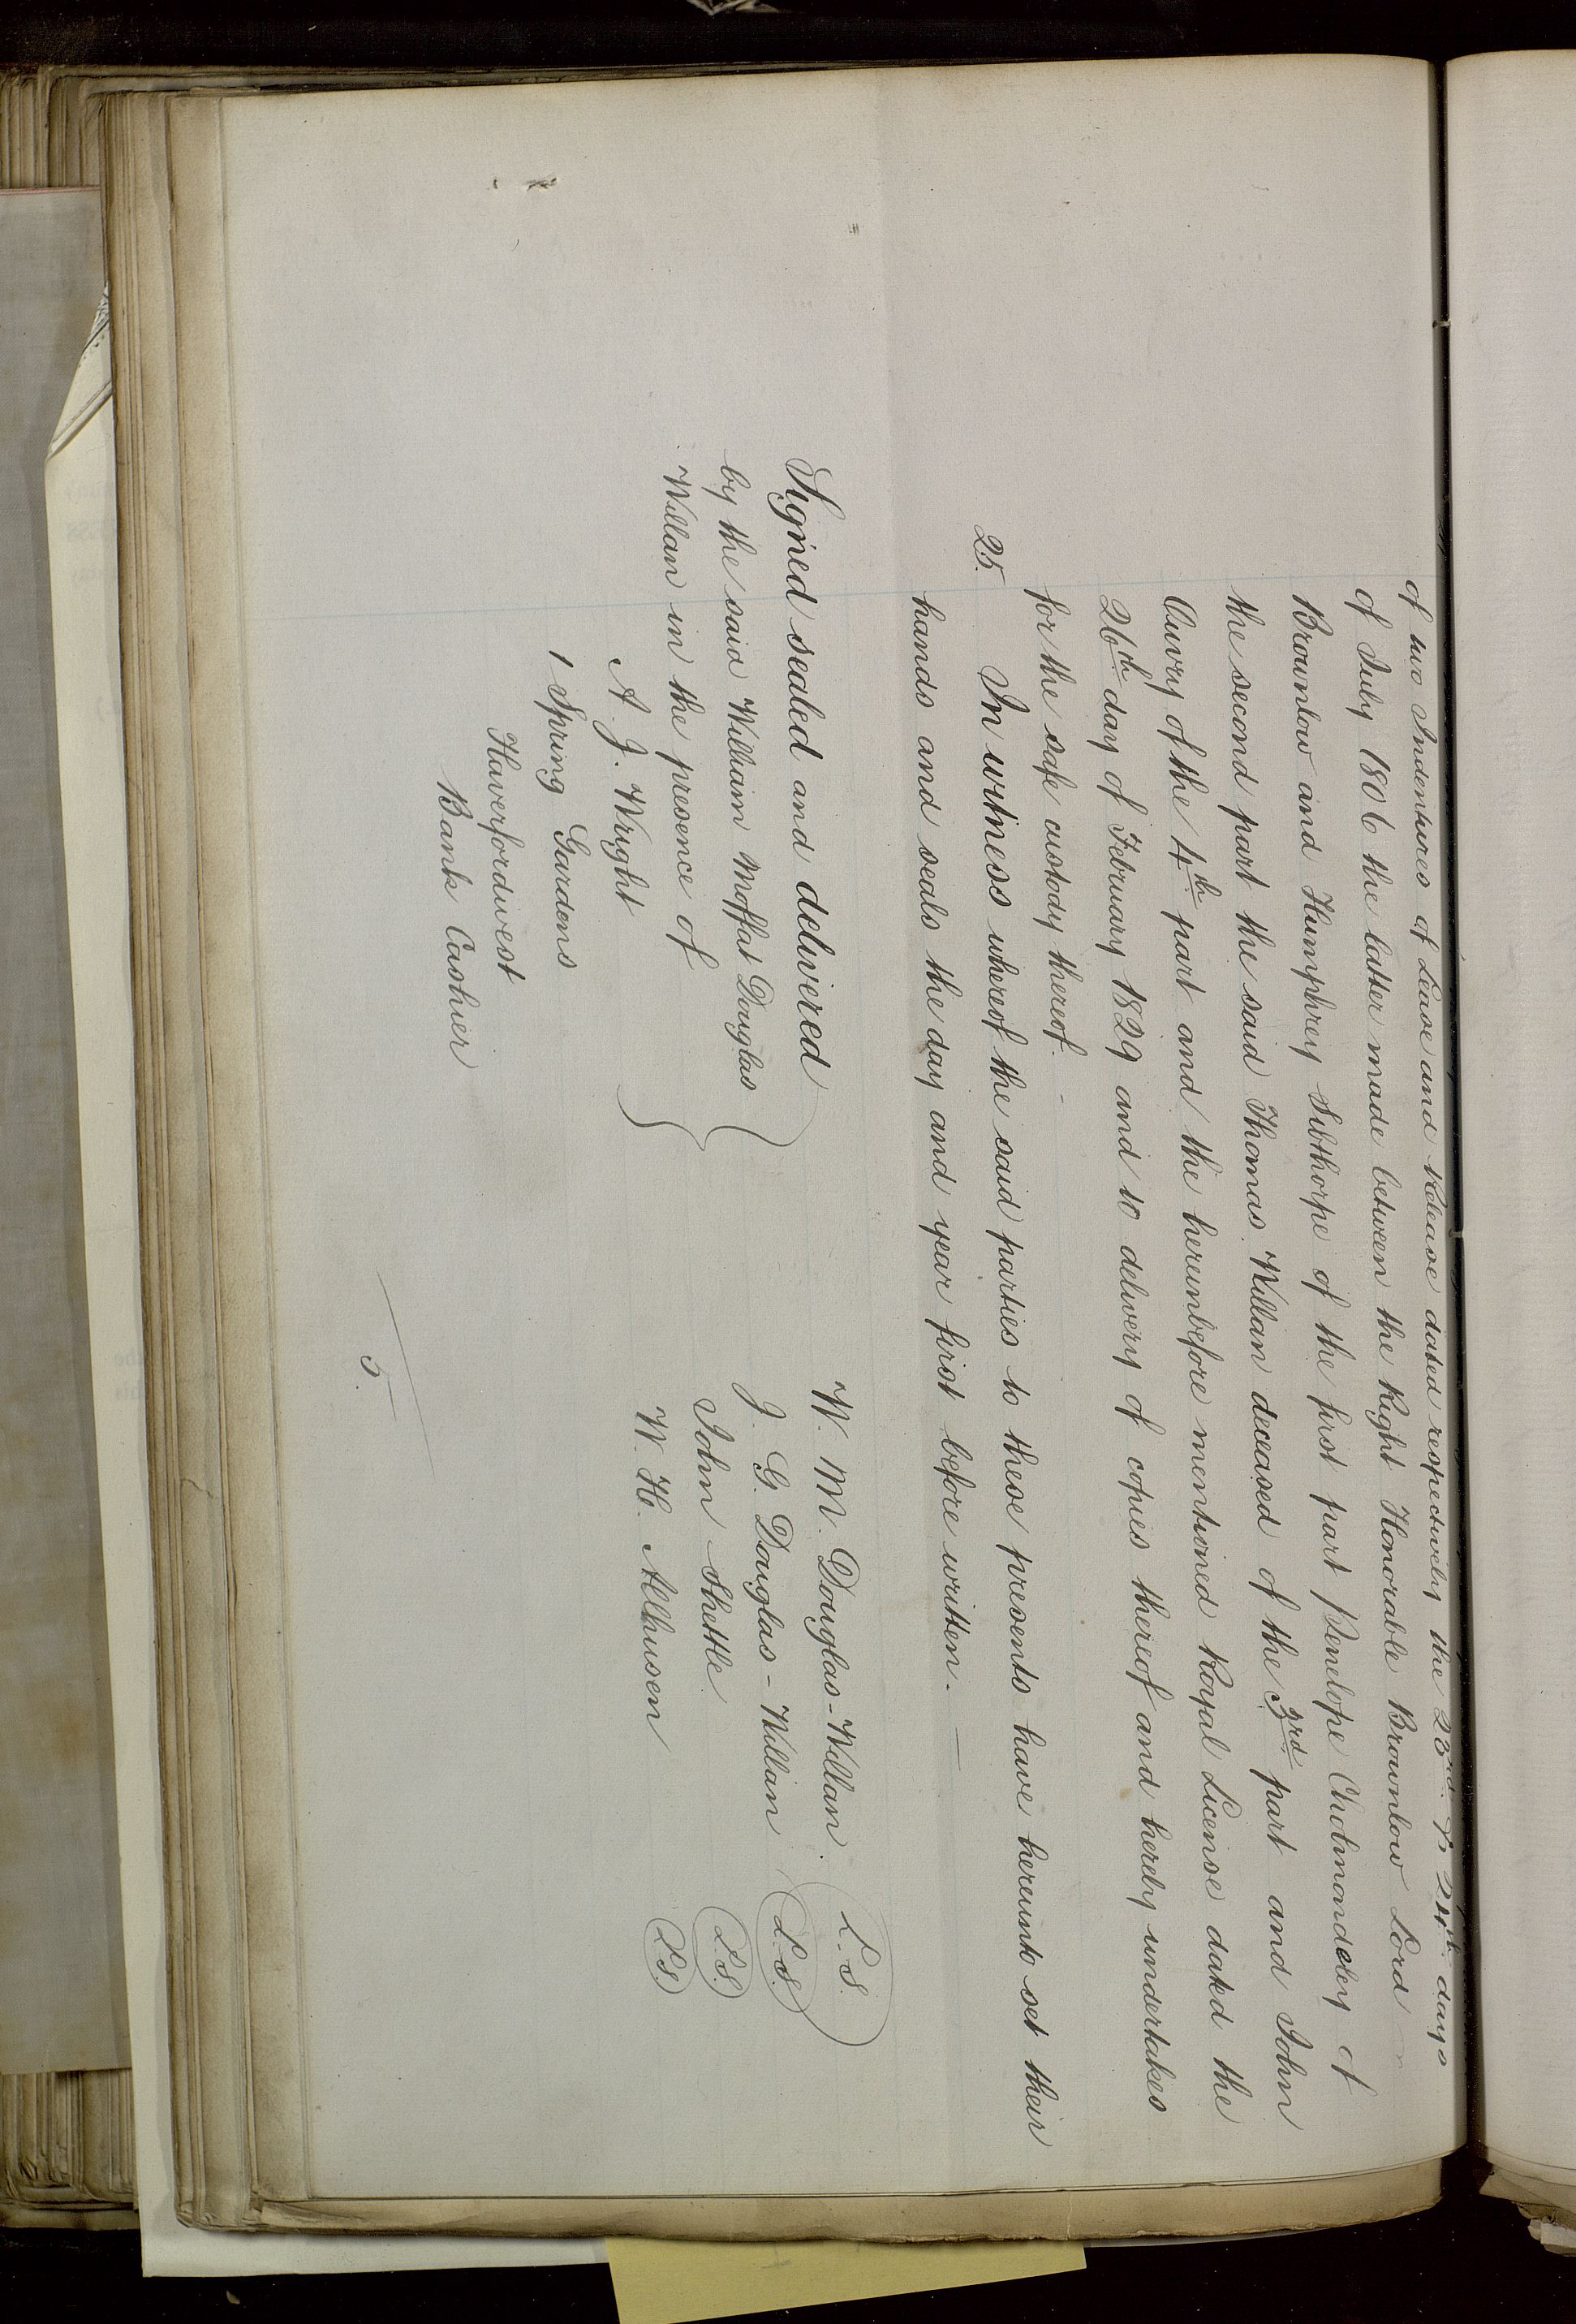 of two Indentures of Lease and Release dated respectively the 23rd & 24th days
of July 1806 the latter made between the Right Honorable Brownlow Lord
Brownlow and Humphrey Sibthorpe of the first part Penelope Cholmondeley of
the second part the said Thomas Willan deceased of the 3rd part and John
Auvry of the 4th part and the hereinbefore mentioned Royal License dated the
26th day of February 1829 and to delivery of copies thereof and hereby undertakes
for the safe custody thereof. -
25. In witness whereof the said parties to these presents have hereunto set their
hands and seals the day and year first before written. —
Signed sealed and delivered
by the said William Moffat Douglas
Willan in the presence of
A. J. Wright
1 Spring Gardens
Haverfordwest
Bank Cashier
W. M. Douglas-Willan. L.S.
J. G. Douglas-Willan L.S.
John Shettle L.S.
W. H. Allhusen L.S.
5